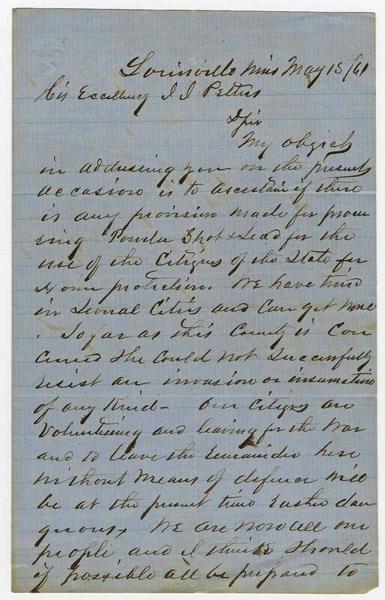 Louisville Miss May 13/61
His Excellency J J Pettus
D Sir
My object
in addressing you on the present
occasion is to ascertain if there
is any provision made for procu
ring Powder Shot & Lead for the
use of the Citizens of the State for
Home protection. We have tried
in Several Cities and Can get None
. So far as this County is Con
cerned She Could not Successfully
resist an invasion or insurrection
of any Kind - Our Citizens are
Volunteering and leaving for the War
and to leave the Remainder here
without Means of defence will
be at the present time Rather dan
gerous, We are Now all one
people and I think Should
if possible all be prepared to